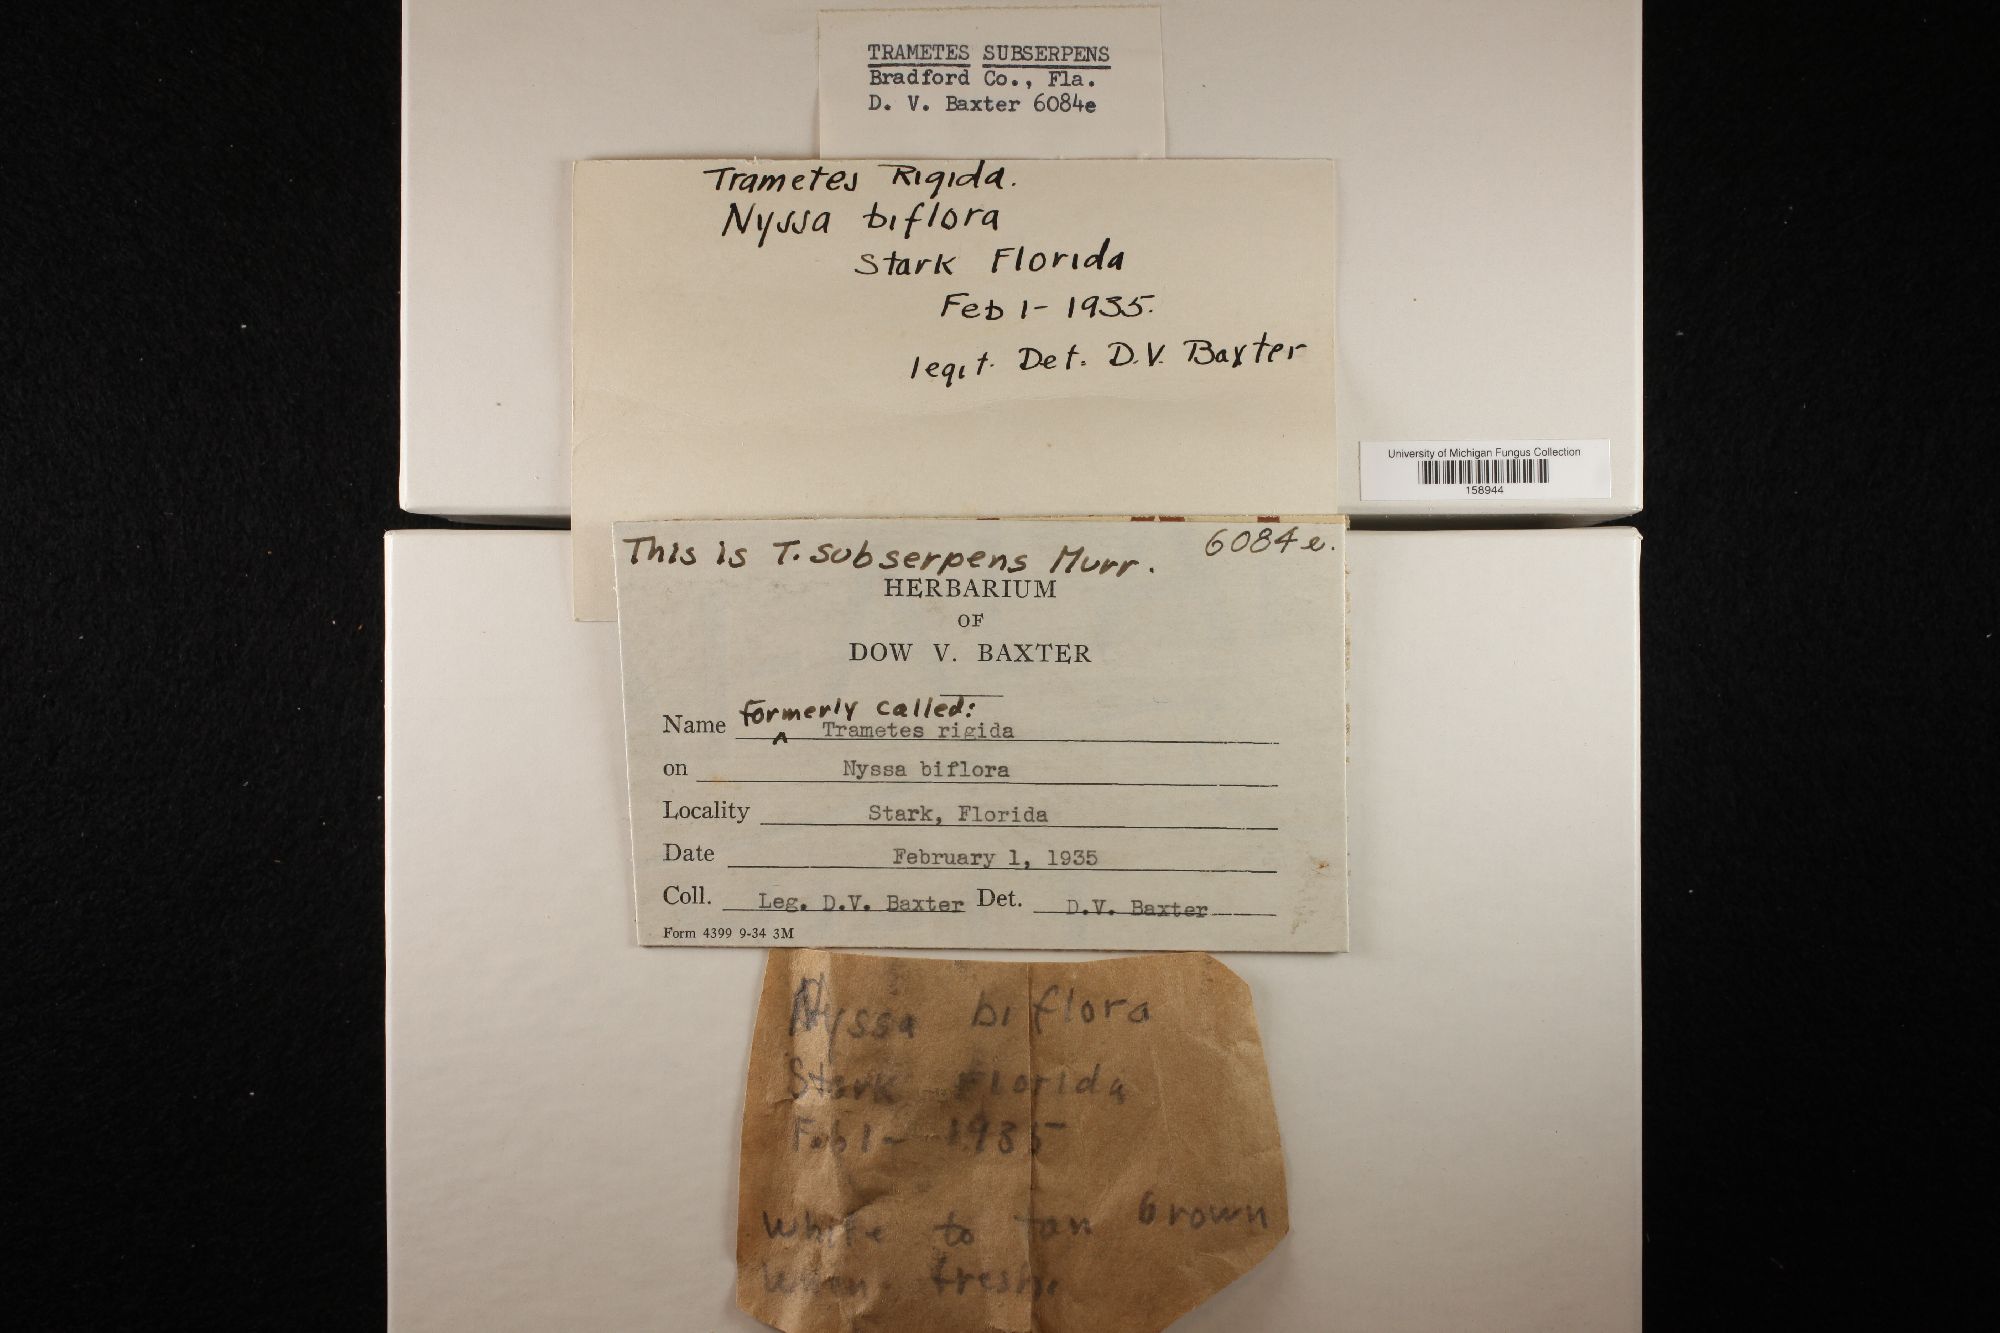 TRAMETES SUBSERPENS
Bradford Co., Fla.
D. V. Baxter 6084e
Trametes Rigida.
Nyssa biflora
Stark Florida
Feb 1- 1935.
legit. Det. D.V. Baxter
University of Michigan Fungus Collection
158944
This is T. subserpens Murr. 6084e.
HERBARIUM
OF
DOW V. BAXTER
formerly called:
Name ^ Trametes rigida
on Nyssa biflora
Locality Stark, Florida
Date February 1, 1935
Coll. Leg. D.V. Baxter Det. D.V. Baxter
Form 4399 9-34 3M
Nyssa biflora
Stark Florida
Feb 1- 1935
White to tan brown
when fresh.